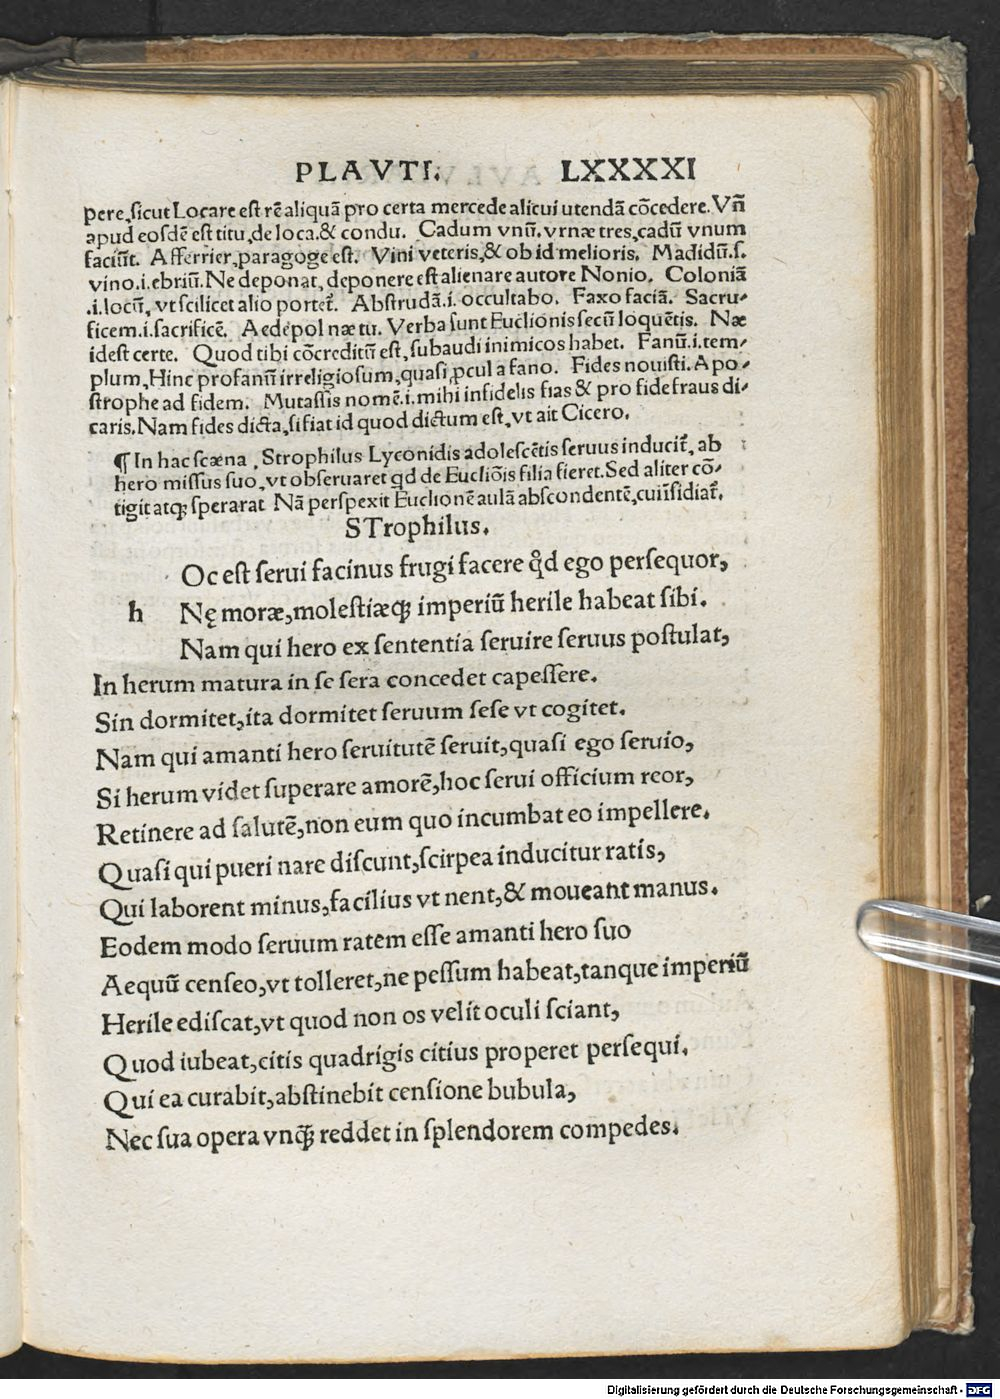 PLAVTI. LXXXXI
pere,sicut Locare est rē aliquā pro certa mercede alicui utendā cōcedere. Vn̄
apud eosdē est titu, de loca.& condu. Cadum vnū. vrnæ tres, cadū vnum
faciūt. Afferrier, paragoge est. Vini veteris,& ob id melioris. Madidū.s.
vino.i.ebriū. Ne deponat, deponere est alienare autore Nonio. Coloniā
.i.locū, vt scilicet alio portet᷑. Abstrudā.i. occultabo. Faxo faciā. Sacru-
ficem.i.sacrificē. Aedepol næ tu. Verba sunt Euclionis secū loquētis. Næ
idest certe. Quod tibi cōcreditū est, subaudi inimicos habet. Fanū.i.tem-
plum, Hinc profanū irreligiosum, quasi ꝓcul a fano. Fides nouisti. Apo-
strophe ad fidem. Mutassis nomē.i.mihi infidelis fias & pro fide fraus di-
caris. Nam fides dicta, si fiat id quod dictum est, vt ait Cicero.
¶ In hac scæna, Strophilus Lyconidis adolescētis seruus inducit᷑, ab
hero missus suo, vt obseruaret qd de Egcliōis filia fieret. Sed aliter cō-
tigit atqȝ sperarat Nā perspexit Euclionē aulā abscondentē, cui īsidiat᷑.
STrophilus.
Oc est serui facinus frugi facere qd̓ ego persequor,
h Nę moræ, molestiæqȝ imperiū herile habeat sibi.
Nam qui hero ex sententia seruire seruus postulat,
In herum matura in se sera concedet capessere.
Sin dormitet, ita dormitet seruum sese vt cogitet.
Nam qui amanti hero seruitutē seruit, quasi ego seruio,
Si herum videt superare amorē, hoc serui officium reor,
Retinere ad salutē, non eum quo incumbat eo impellere.
Quasi qui pueri nare discunt, scirpea inducitur ratis,
Qui laborent minus, facilius vt nent,& moueant manus.
Eodem modo seruum ratem esse amanti hero suo
Aequū censeo, vt tolleret, ne pessum habeat, tanque imperiū
Herile ediscat, vt quod non os velit oculi sciant,
Quod iubeat, citis quadrigis citius properet persequi.
Qui ea curabit, abstinebit censione bubula,
Nec sua opera vnqȝ reddet in splendorem compedes.
Digitalisierung gefördert durch die Deutsche Forschungsgemeinschaft - DFG